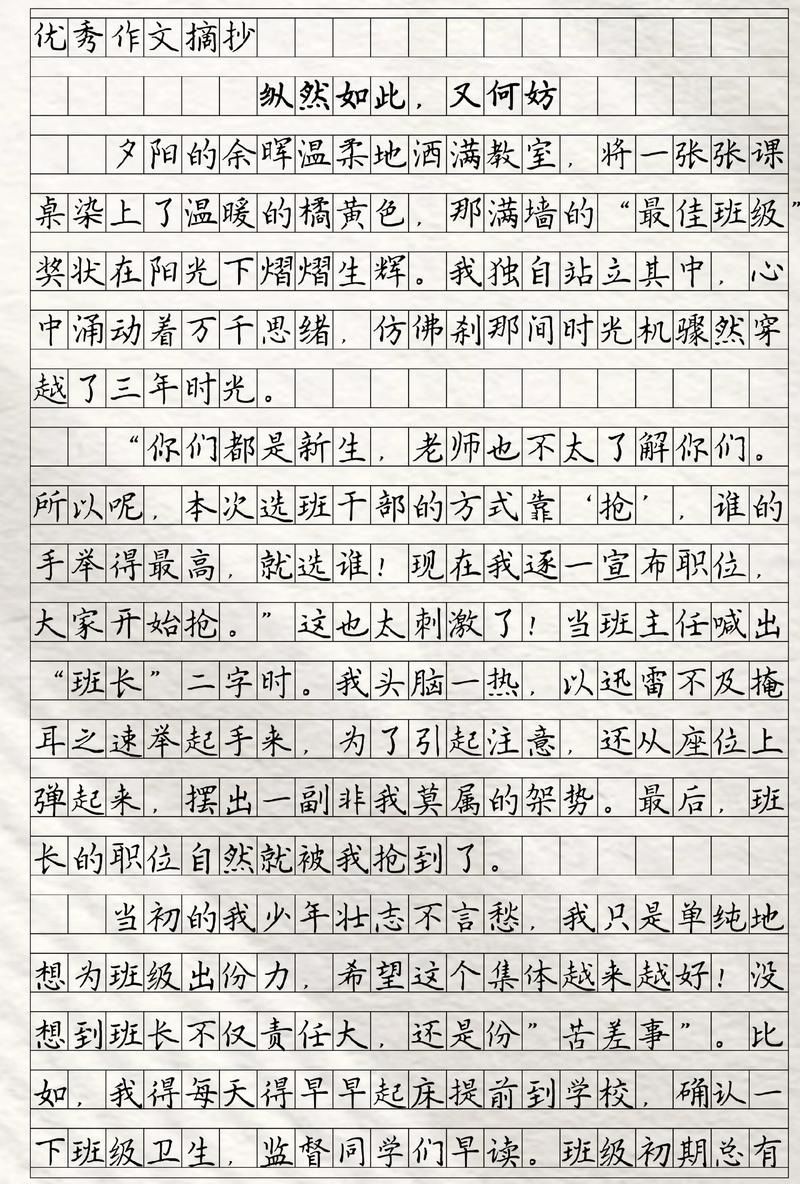 优秀作文摘抄
纵然如此，又何妨
夕阳的余晖温柔地洒满教室，将一张张课
桌染上了温暖的橘黄色，那满墙的“最佳班级”
奖状在阳光下熠熠生辉。我独自站立其中，心
中涌动着万千思绪，仿佛刹那间时光机骤然穿
越了三年时光。
“你们都是新生，老师也不太了解你们。
所以呢，本次选班干部的方式靠‘抢’，谁的
手举得最高，就选谁！现在我逐一宣布职位，
大家开始抢。”这也太刺激了！当班主任喊出
“班长”二字时。我头脑一热，以迅雷不及掩
耳之速举起手来，为了引起注意，还从座位上
弹起来，摆出一副非我莫属的架势。最后，班
长的职位自然就被我抢到了。
当初的我少年壮志不言愁，我只是单纯地
想为班级出份力，希望这个集体越来越好！没
想到班长不仅责任大，还是份”苦差事”。比
如，我得每天得早早起床提前到学校，确认一
下班级卫生，监督同学们早读。班级初期总有